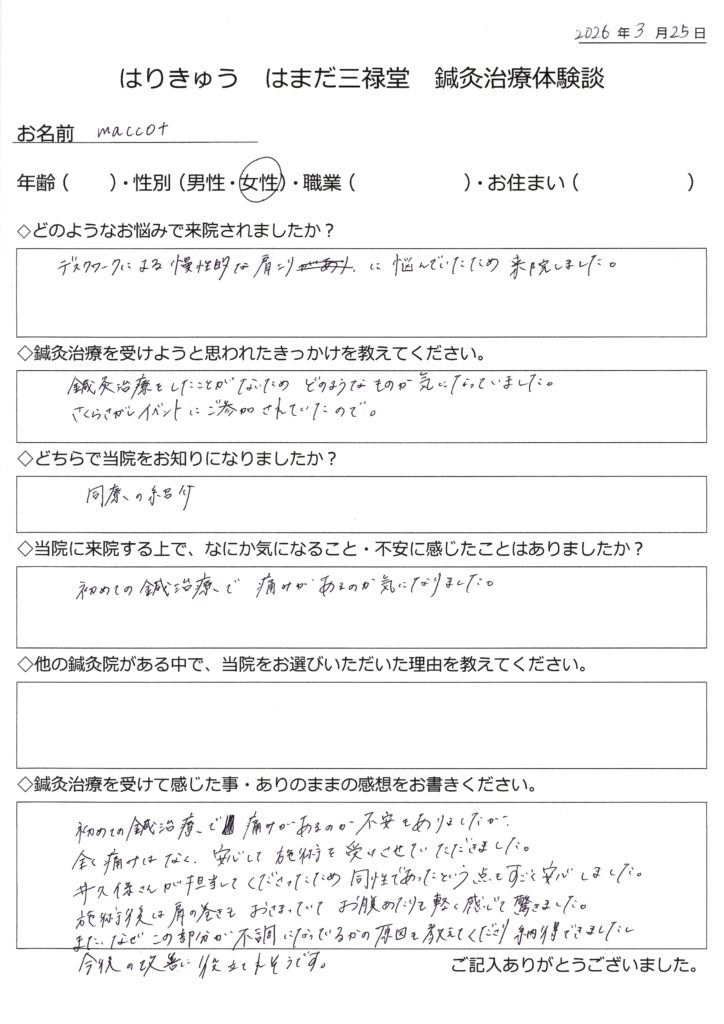 2026年3月25日
はりきゅう はまだ三禄堂 鍼灸治療体験談
お名前 maccot
年齢( )・性別(男性・女性)・職業( )・お住まい( )
◇どのようなお悩みで来院されましたか?
デスクワークによる慢性的な肩こりに悩んでいたため来院しました。
◇鍼灸治療を受けようと思われたきっかけを教えてください。
鍼灸治療をしたことがないため どのようなものか気になっていました。
さくらさがしイベントにご参加されていたので。
◇どちらで当院をお知りになりましたか?
同療の紹介
◇当院に来院する上で、なにか気になること・不安に感じたことはありましたか?
初めての鍼治療で 痛みがあるのか気になりました。
◇他の鍼灸院がある中で、当院をお選びいただいた理由を教えてください。
◇鍼灸治療を受けて感じた事・ありのままの感想をお書きください。
初めての鍼治療で 痛みがあるのか不安もありましたが、
全く痛みはなく、安心して施術を受けさせていただきました。
井久保さんが担当してくださったため同性であったという点もすごく安心しました。
施術後は肩の巻きもおさまっていて お腹あたりも軽く感じて驚きました。
また、なぜこの部分が不調になっているかの原因も教えてくださり納得できましたし
今後の改善に役立てれそうです。
ご記入ありがとうございました。